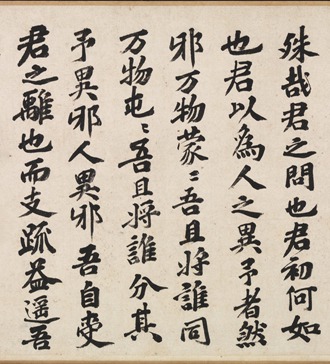 殊哉君之問也君初何如
也君以為人之異予者然
邪万物蒙〻吾且将誰同
万物屯〻吾且将誰分其
予異邪人異邪吾自変
君之離也而支疏益遥吾